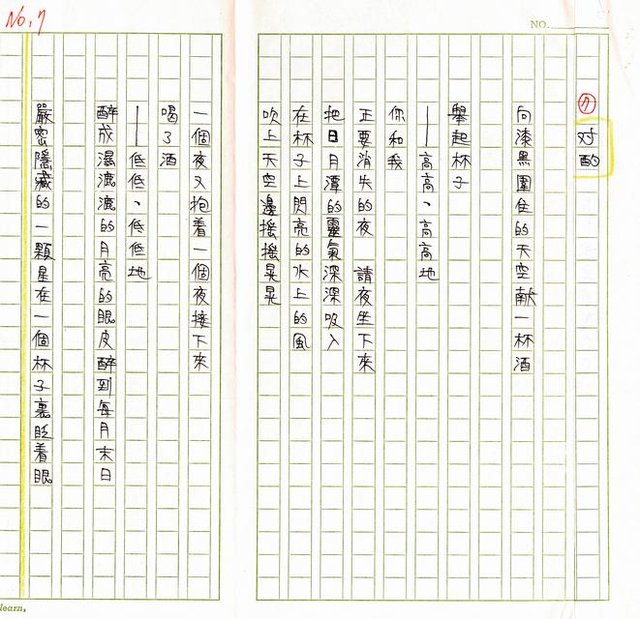 No. 7
NO.
⑦ 对酌
向漆黑圍住的天空献一杯酒
舉起杯子
——高高、高高地
你和我
正要消失的夜　請夜坐下來
把日月潭的靈氣深深吸入
在杯子上閃亮的水上的風
吹上天空邊搖搖晃晃
一個夜又抱着一個夜接下來
喝了酒
——低低、低低地
醉成濕漉漉的月亮的眼皮醉到每月末日
嚴密隱藏的一顆星在一個杯子裏眨着眼
learn.